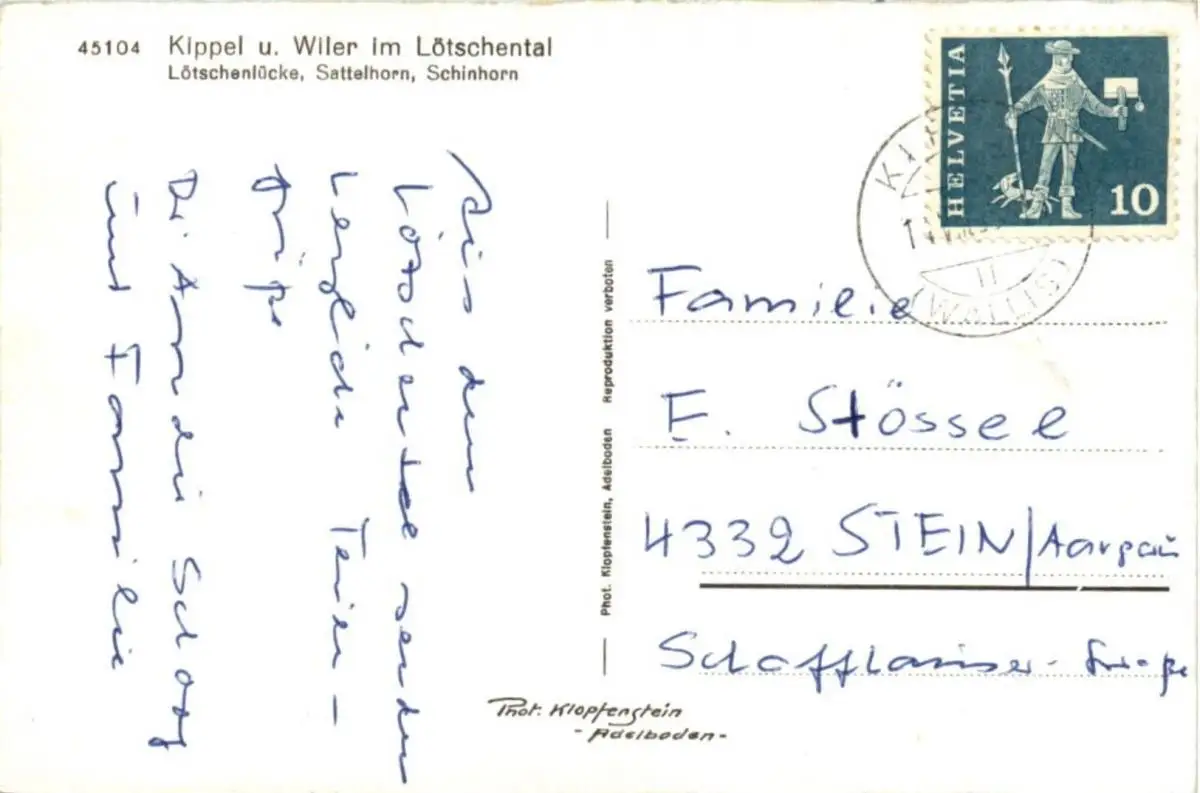 45104 Kippel u. Wiler im Lötschental
Lötschenlücke, Sattelhorn, Schinhorn
HELVETIA
10
(WALLIS)
Aus dem
Lötschental senden
herzliche Ferien-
grüße
und Familie
Phot. Klopfenstein, Adelboden Reproduktion verboten
Familie
E. Stössel
4332 STEIN/Aargau
Schaffhauser-Straße
Phot. Klopfenstein
-Adelboden-